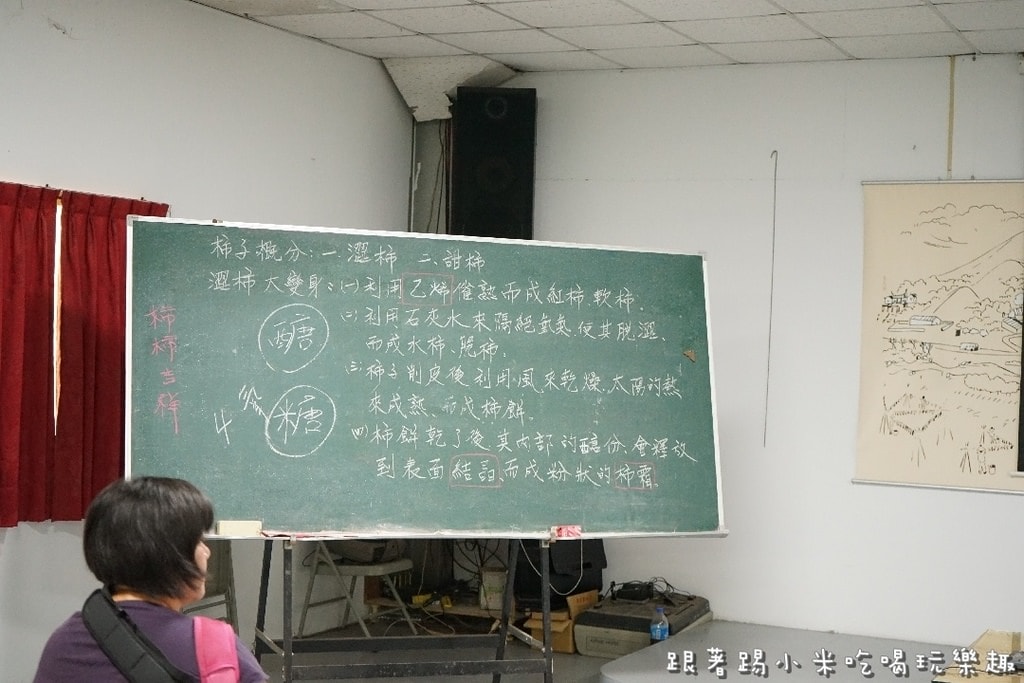 柿子概分:一.澀柿 二.甜柿
澀柿大變身:(一)利用乙烯催熟而成紅柿.軟柿.
(二)利用石灰水來隔絕氧氣.使其脫澀.
而成水柿.脆柿.
(三)柿子削皮後利用風來乾燥.太陽的熱
來成熟.而成柿餅.
(四)柿餅乾了後其內部的醣份.會釋放
到表面結晶.而成粉狀的柿霜.
柿柿吉祥
醣
糖
跟著踢小米吃喝玩樂趣